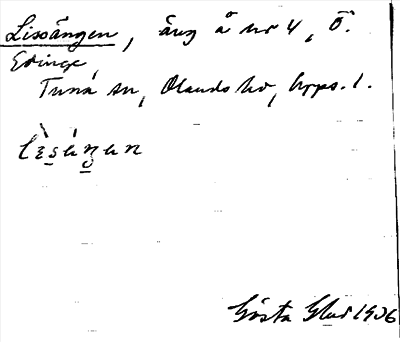 Lissängen, äng å nr 4, Ö.
Edinge
Tuna sn, Olands hd, Upps. l.
Gösta Glad 1936